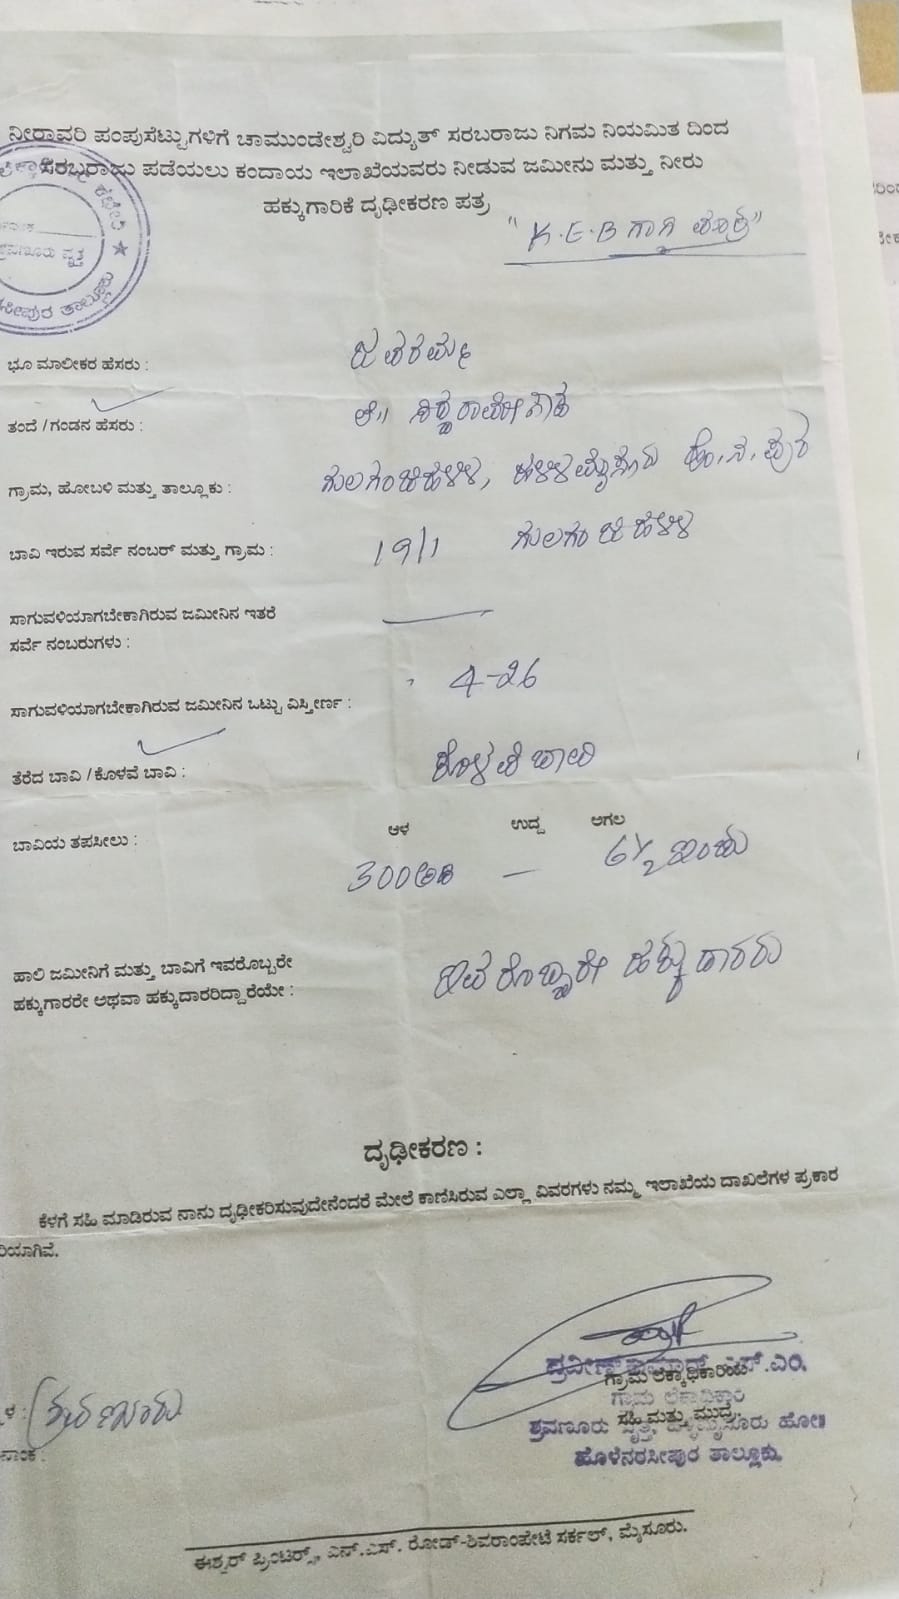 ನೀರಾವರಿ ಪಂಪುಸೆಟ್ಟುಗಳಿಗೆ ಚಾಮುಂಡೇಶ್ವರಿ ವಿದ್ಯುತ್ ಸರಬರಾಜು ನಿಗಮ ನಿಯಮಿತ ದಿಂದ
ಸರಬ್ಬರಾಜು ಪಡೆಯಲು ಕಂದಾಯ ಇಲಾಖೆಯವರು ನೀಡುವ ಜಮೀನು ಮತ್ತು ನೀರು
ಹಕ್ಕುಗಾರಿಕೆ ದೃಢೀಕರಣ ಪತ್ರ
"K.E.B ಗಾಗಿ ಮಾತ್ರ"
ಶ್ರವಣೂರು ವೃತ್ತ
ಭೂ ಮಾಲೀಕರ ಹೆಸರು :
ತಂದೆ / ಗಂಡನ ಹೆಸರು :
ಗ್ರಾಮ, ಹೋಬಳಿ ಮತ್ತು ತಾಲ್ಲೂಕು : ಗುಲಗಂಜಿಹಳ್ಳಿ, ಹಳ್ಳಿಮೈಸೂರು ಹೊ.ನ.ಪುರ
ಬಾವಿ ಇರುವ ಸರ್ವೆ ನಂಬರ್ ಮತ್ತು ಗ್ರಾಮ : 19/1 ಗುಲಗಂಜಿಹಳ್ಳಿ
ಸಾಗುವಳಿಯಾಗಬೇಕಾಗಿರುವ ಜಮೀನಿನ ಇತರೆ
ಸರ್ವೆ ನಂಬರುಗಳು :
ಸಾಗುವಳಿಯಾಗಬೇಕಾಗಿರುವ ಜಮೀನಿನ ಒಟ್ಟು ವಿಸ್ತೀರ್ಣ : 4-26
ತೆರೆದ ಬಾವಿ / ಕೊಳವೆ ಬಾವಿ : ಕೊಳವೆ ಬಾವಿ
ಆಳ ಉದ್ದ ಅಗಲ
ಬಾವಿಯ ತಪಸೀಲು :
300 ಅಡಿ — 6½ ಇಂಚು
ಹಾಲಿ ಜಮೀನಿಗೆ ಮತ್ತು ಬಾವಿಗೆ ಇವರೊಬ್ಬರೇ
ಹಕ್ಕುಗಾರರೇ ಅಥವಾ ಹಕ್ಕುದಾರರಿದ್ದಾರೆಯೇ : ಇವರೊಬ್ಬರೇ ಹಕ್ಕುದಾರರು
ದೃಢೀಕರಣ :
ಕೆಳಗೆ ಸಹಿ ಮಾಡಿರುವ ನಾನು ದೃಢೀಕರಿಸುವುದೇನೆಂದರೆ ಮೇಲೆ ಕಾಣಿಸಿರುವ ಎಲ್ಲಾ ವಿವರಗಳು ನಮ್ಮ ಇಲಾಖೆಯ ದಾಖಲೆಗಳ ಪ್ರಕಾರ
ರಿಯಾಗಿವೆ.
ಗ್ರಾಮ ಲೆಕ್ಕಾಧಿಕಾರಿಯ
ಸಹಿ ಮತ್ತು ಮುದ್ರೆ
ಹೊಳೆನರಸೀಪುರ ತಾಲ್ಲೂಕು.
ಶ್ರವಣೂರು
ಈಶ್ವರ್ ಪ್ರಿಂಟರ್ಸ್, ಎನ್.ಎಸ್. ರೋಡ್-ಶಿವರಾಂಪೇಟೆ ಸರ್ಕಲ್, ಮೈಸೂರು.